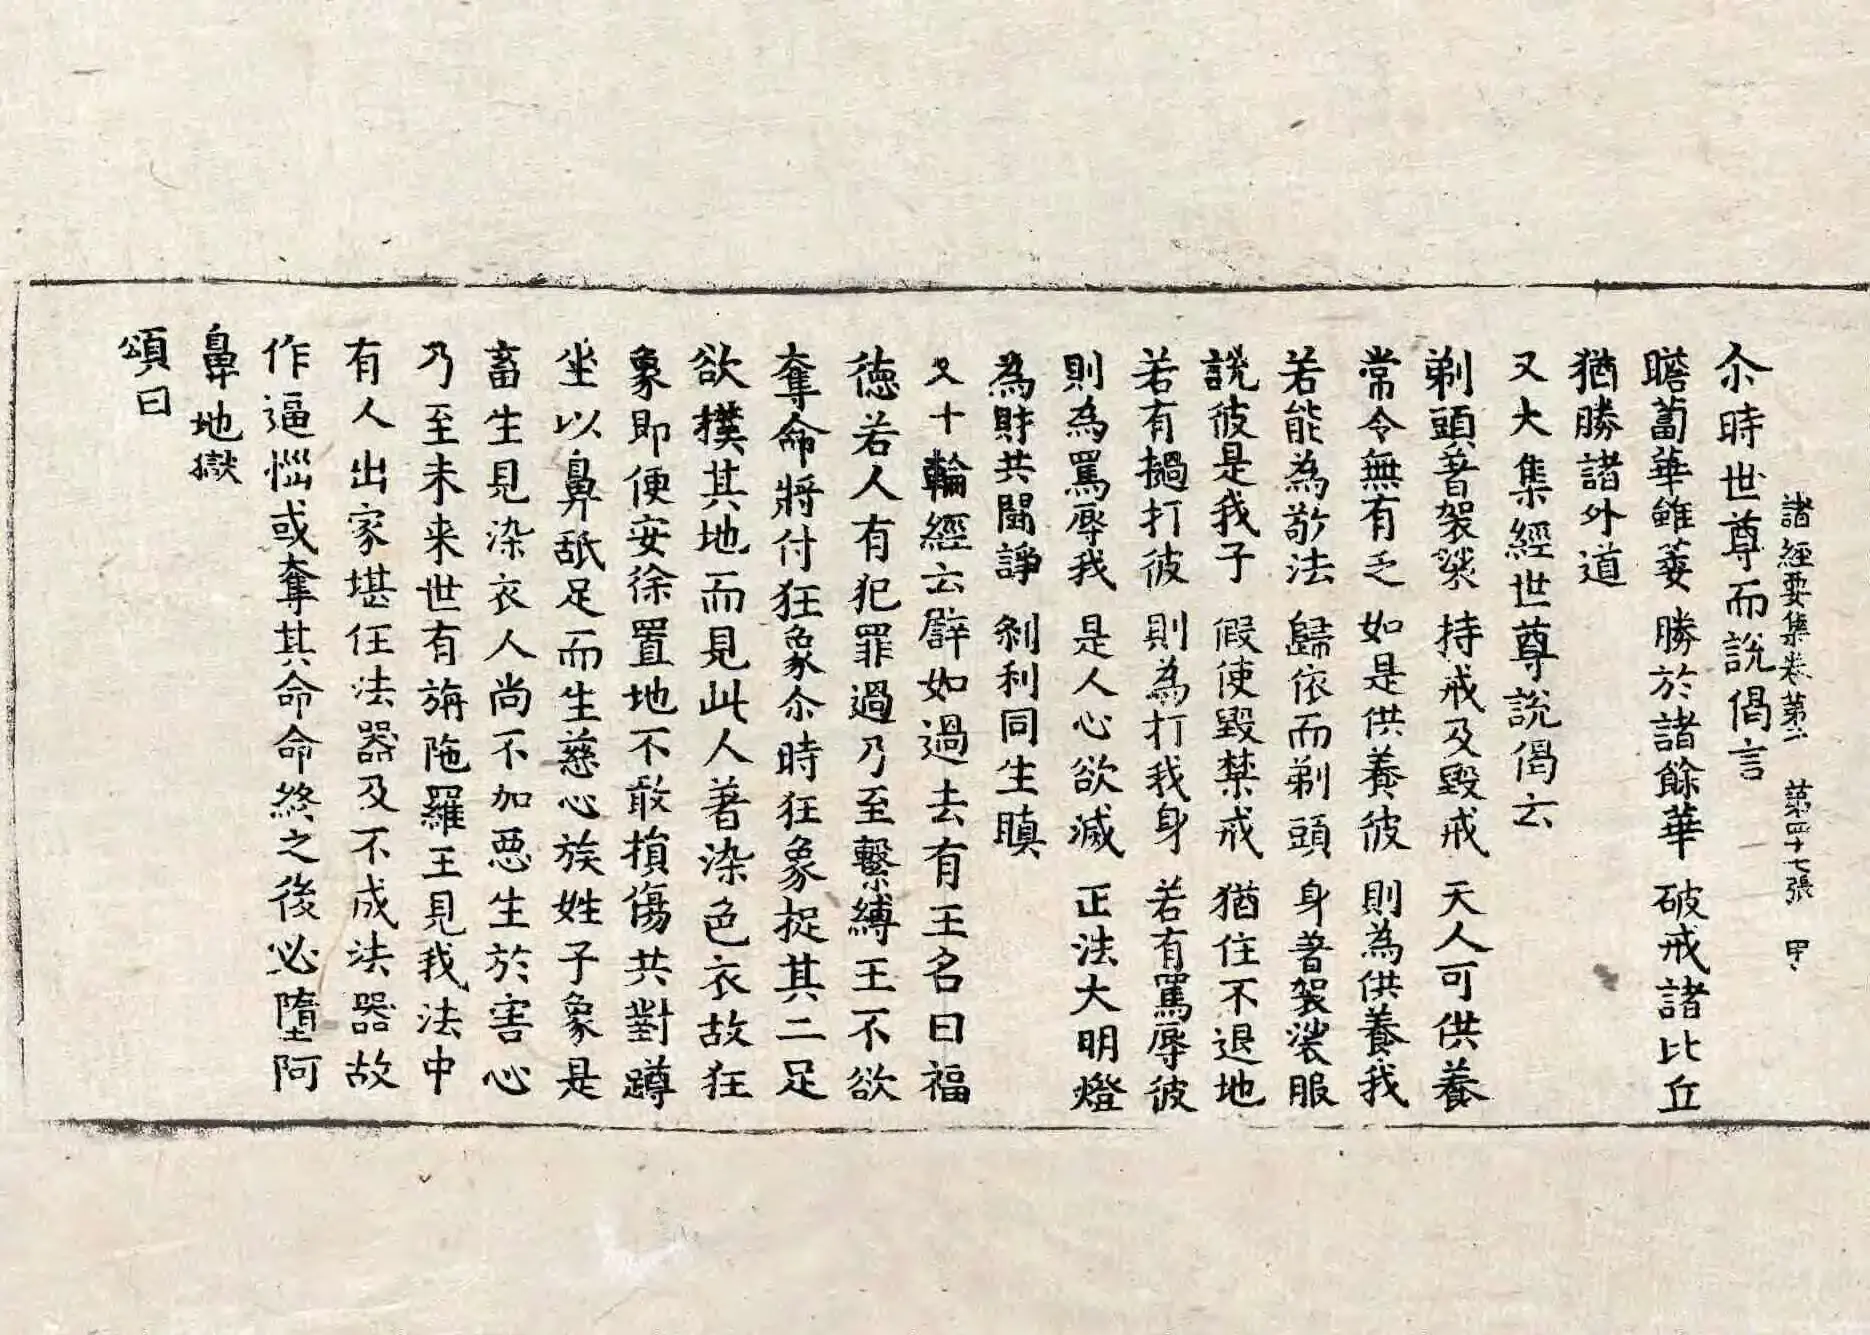 諸經要集卷第二　第四十七張　甲
尒時世尊而說偈言
瞻蔔華雖萎　勝於諸餘華　破戒諸比丘
猶勝諸外道
又大集經世尊說偈云
剃頭著袈裟　持戒及毀戒　天人可供養
常令無有乏　如是供養彼　則為供養我
若能為敬法　歸依而剃頭　身著袈裟服
說彼是我子　假使毀禁戒　猶住不退地
若有撾打彼　則為打我身　若有罵辱彼
則為罵辱我　是人心欲滅　正法大明燈
為財共鬪諍　剎利同生瞋
又十輪經云譬如過去有王名曰福
德若人有犯罪過乃至繫縛王不欲
奪命將付狂象尒時狂象捉其二足
欲撲其地而見此人著染色衣故狂
象即便安徐置地不敢損傷共對蹲
坐以鼻舐足而生慈心族姓子象是
畜生見染衣人尚不加惡生於害心
乃至未来世有旃陁羅王見我法中
有人出家堪任法器及不成法器故
作逼惱或奪其命命終之後必墮阿
鼻地獄
頌曰